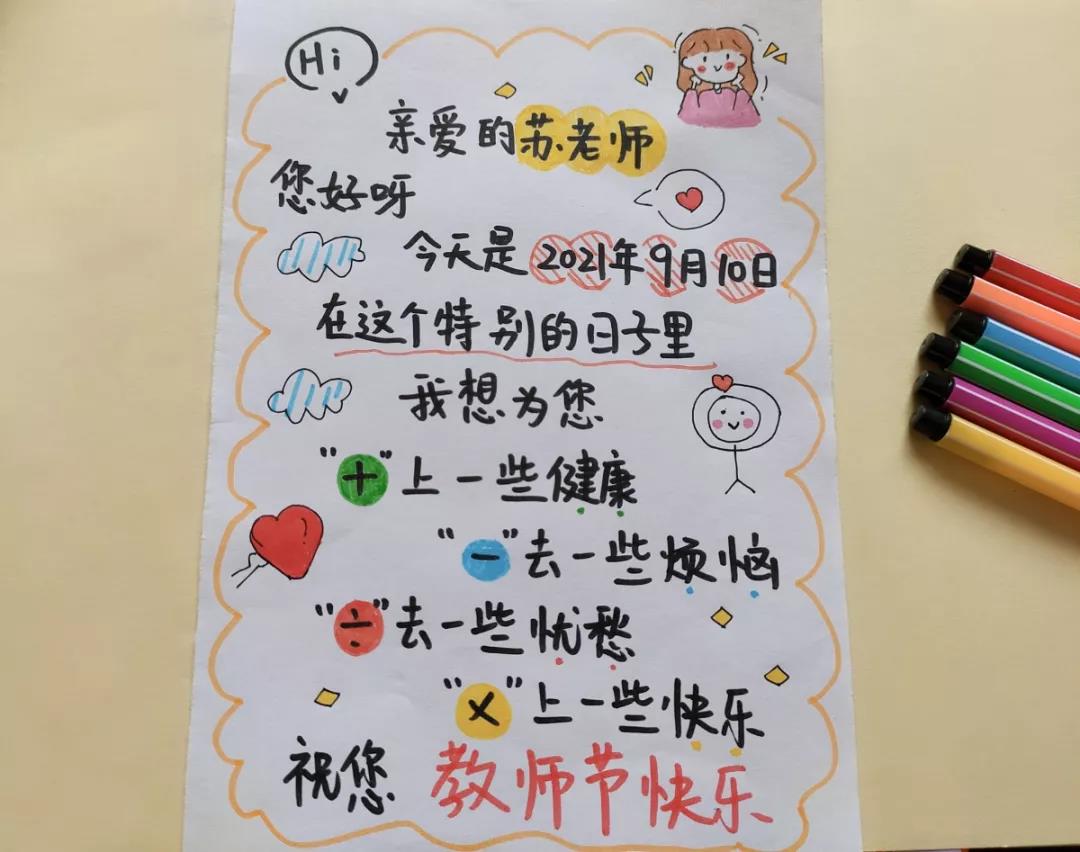 Hi
亲爱的苏老师
您好呀
今天是2021年9月10日
在这个特别的日子里
我想为您
"+"上一些健康
"-"去一些烦恼
"÷"去一些忧愁
"×"上一些快乐
祝您 教师节快乐